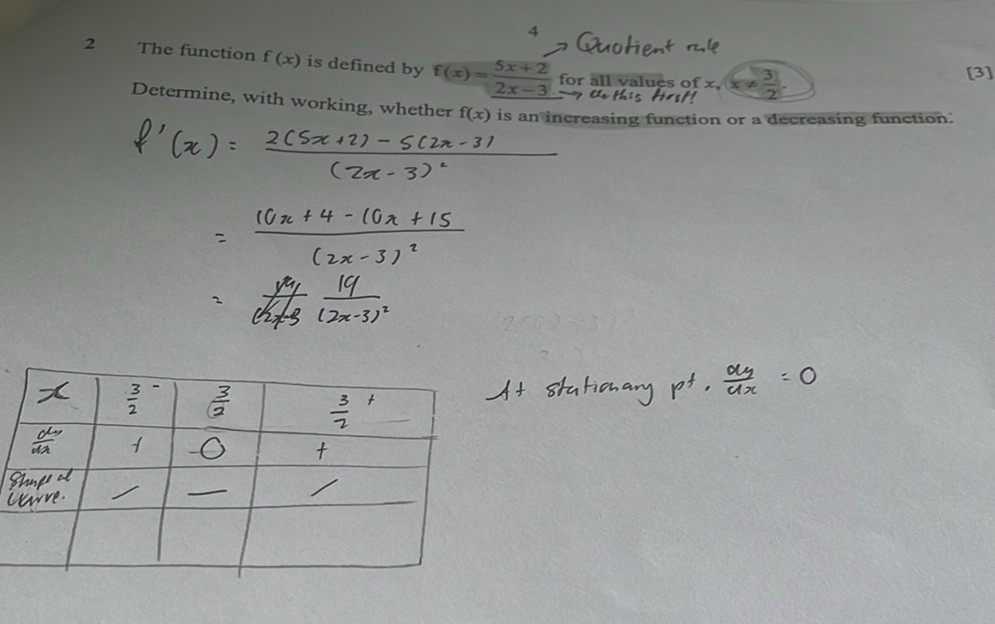 4
→ Quotient rule
2 The function f (x) is defined by f(x) = \frac{5x+2}{2x-3} for all values of x, x ≠ \frac{3}{2}. [3]
→ this first!
Determine, with working, whether f(x) is an increasing function or a decreasing function.
f'(x) = \frac{2(5x+2) - 5(2x-3)}{(2x-3)^2}
= \frac{10x+4-10x+15}{(2x-3)^2}
= \frac{19}{(2x-3)^2}
x | \frac{3}{2}^- | \frac{3}{2} | \frac{3}{2}^+
At stationary pt, \frac{dy}{dx} = 0
\frac{dy}{dx} | + | 0 | +
Shape of curve. | / | — | /